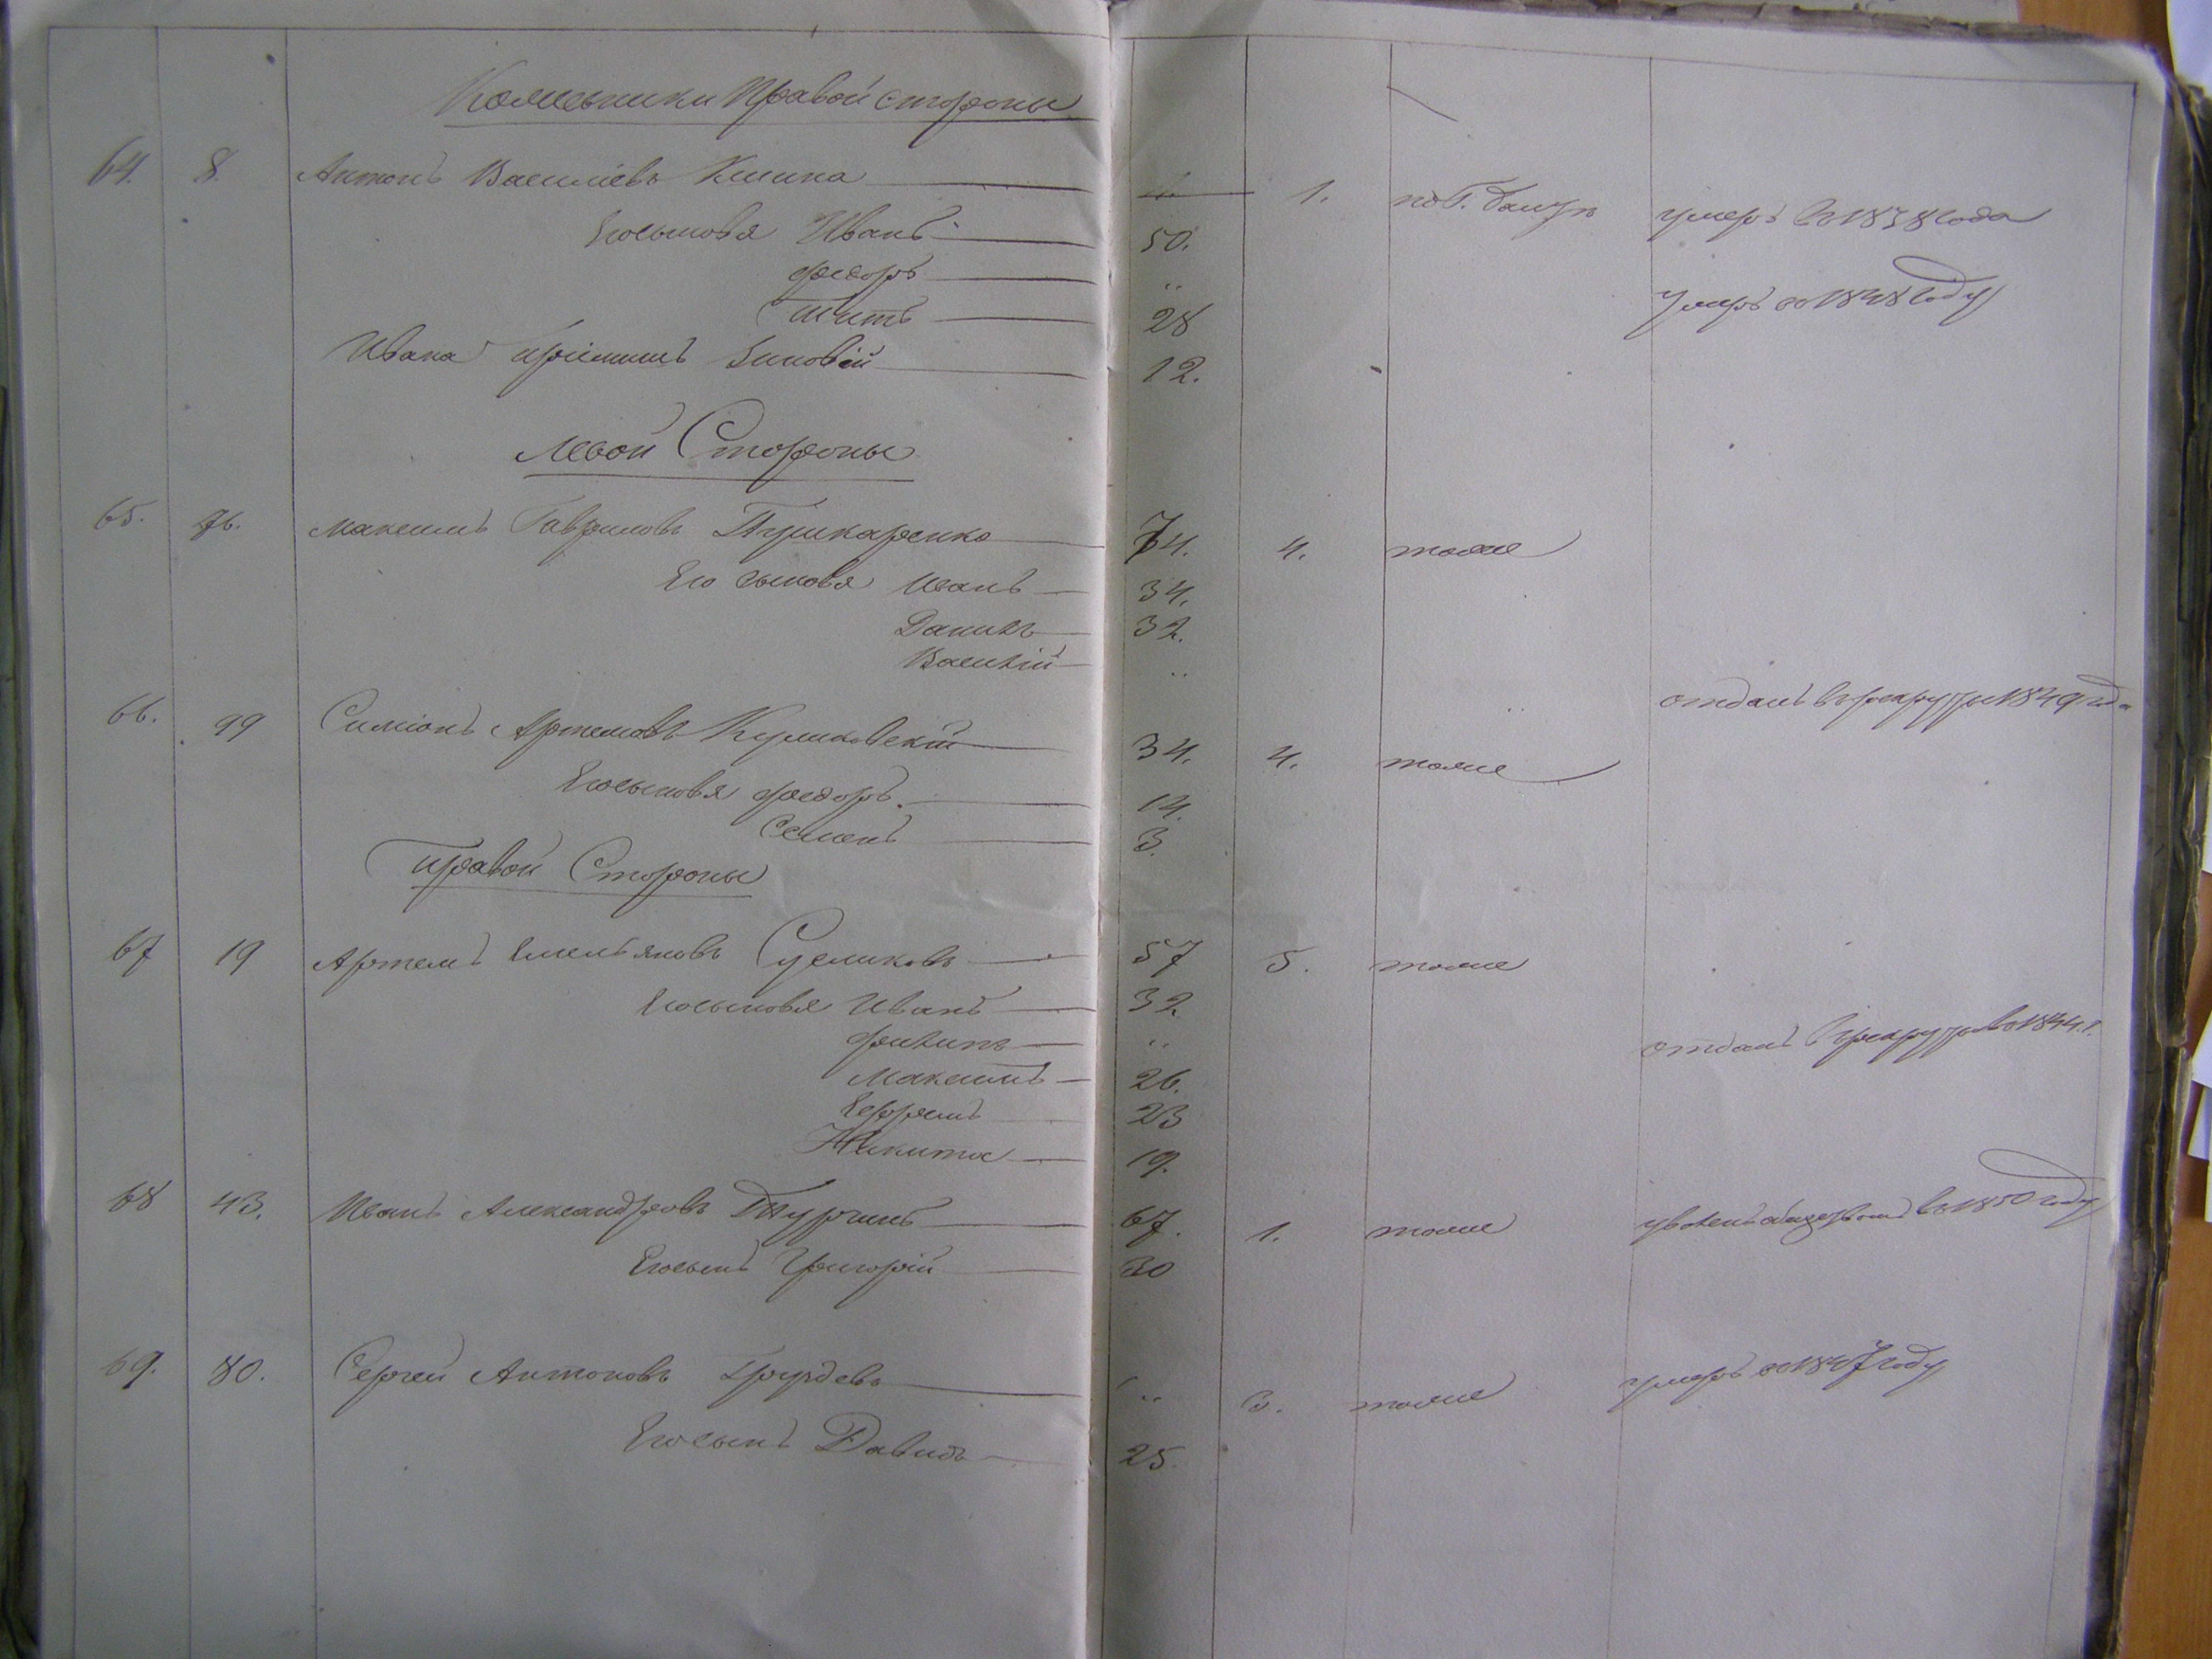 Правой стороны
64. 8. Антонъ Васильевъ Кишка 1. умеръ въ 1838 года
Егосыновья Иванъ 50.
Федоръ " умеръ въ 1848 году
Титъ 28
Ивана пріимышъ Зиновій 12.
Левой Стороны
65. 76. Максимъ Гавриловъ Пушкаренко 74. 4. тоже
Его сыновья Иванъ 34.
Данилъ 32.
Василій " отданъ въ рекруты 1849 года
66. 99 Симіонъ Артемовъ Куликовскій 34. 4. тоже
Егосыновья Федоръ. 14.
Семенъ 3.
Правой Стороны
67 19 Артемъ Емельяновъ Сусликовъ 57 5. тоже
Егосыновья Иванъ 32
Филипъ " отданъ въ рекруты въ 1844 г.
Максимъ 26.
Ефремъ 23
Никита 19.
68 43. Иванъ Александровъ Турчинъ 67. 1. тоже уволенъ обществомъ въ 1850 году
Егосынъ Григорій 30
69. 80. Сергей Антоновъ Груздевъ " 3. тоже умеръ въ 1847 году
Егосынъ Давидъ 25.